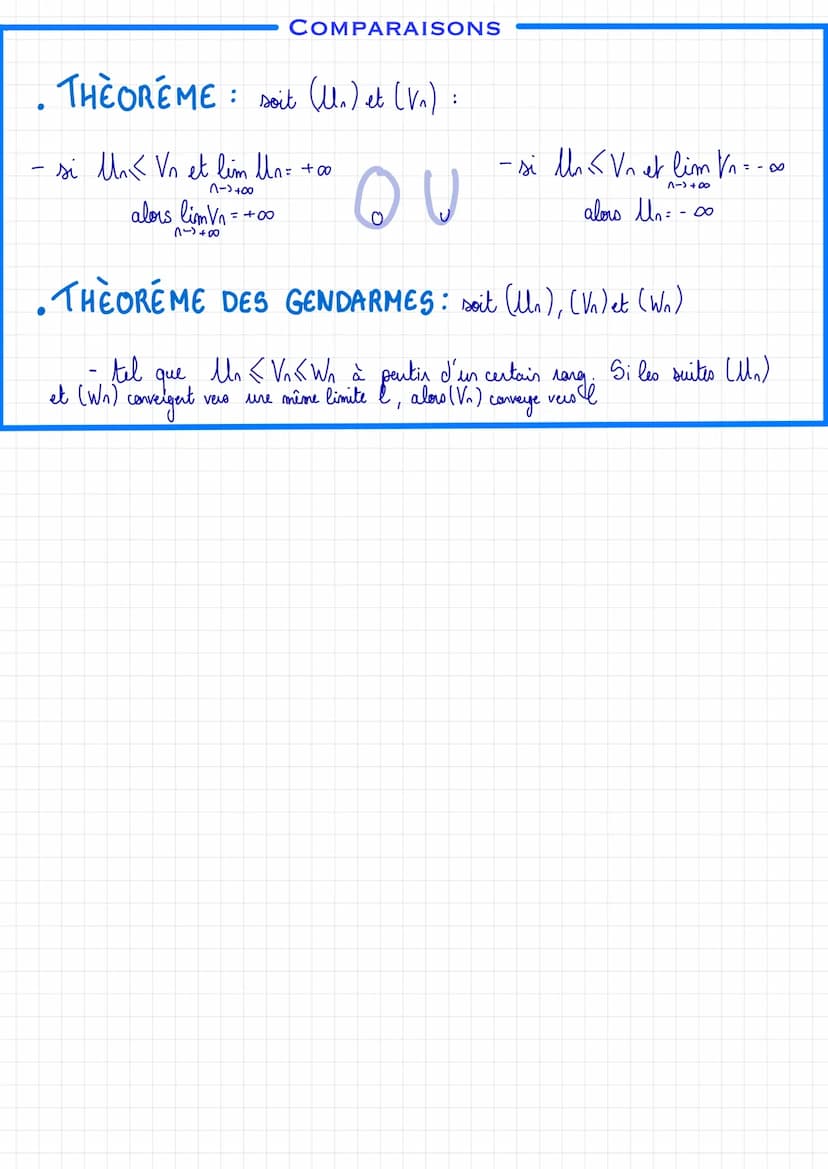 COMPARAISONS
. THÈORÉME : soit (Un) et (Vn) :
- si Un < Vn et lim Un = +∞
n->+∞
alors lim Vn = +∞
n->+∞
OU
- si Un ≤ Vn et lim Vn = -∞
n->+∞
alors Un = -∞
. THÈORÉME DES GENDARMES : soit (Un), (Vn) et (Wn)
- tel que Un ≤ Vn ≤ Wn à partir d'un certain rang. Si les suites (Un)
et (Wn) convergent vers une même limite l, alors (Vn) converge vers l